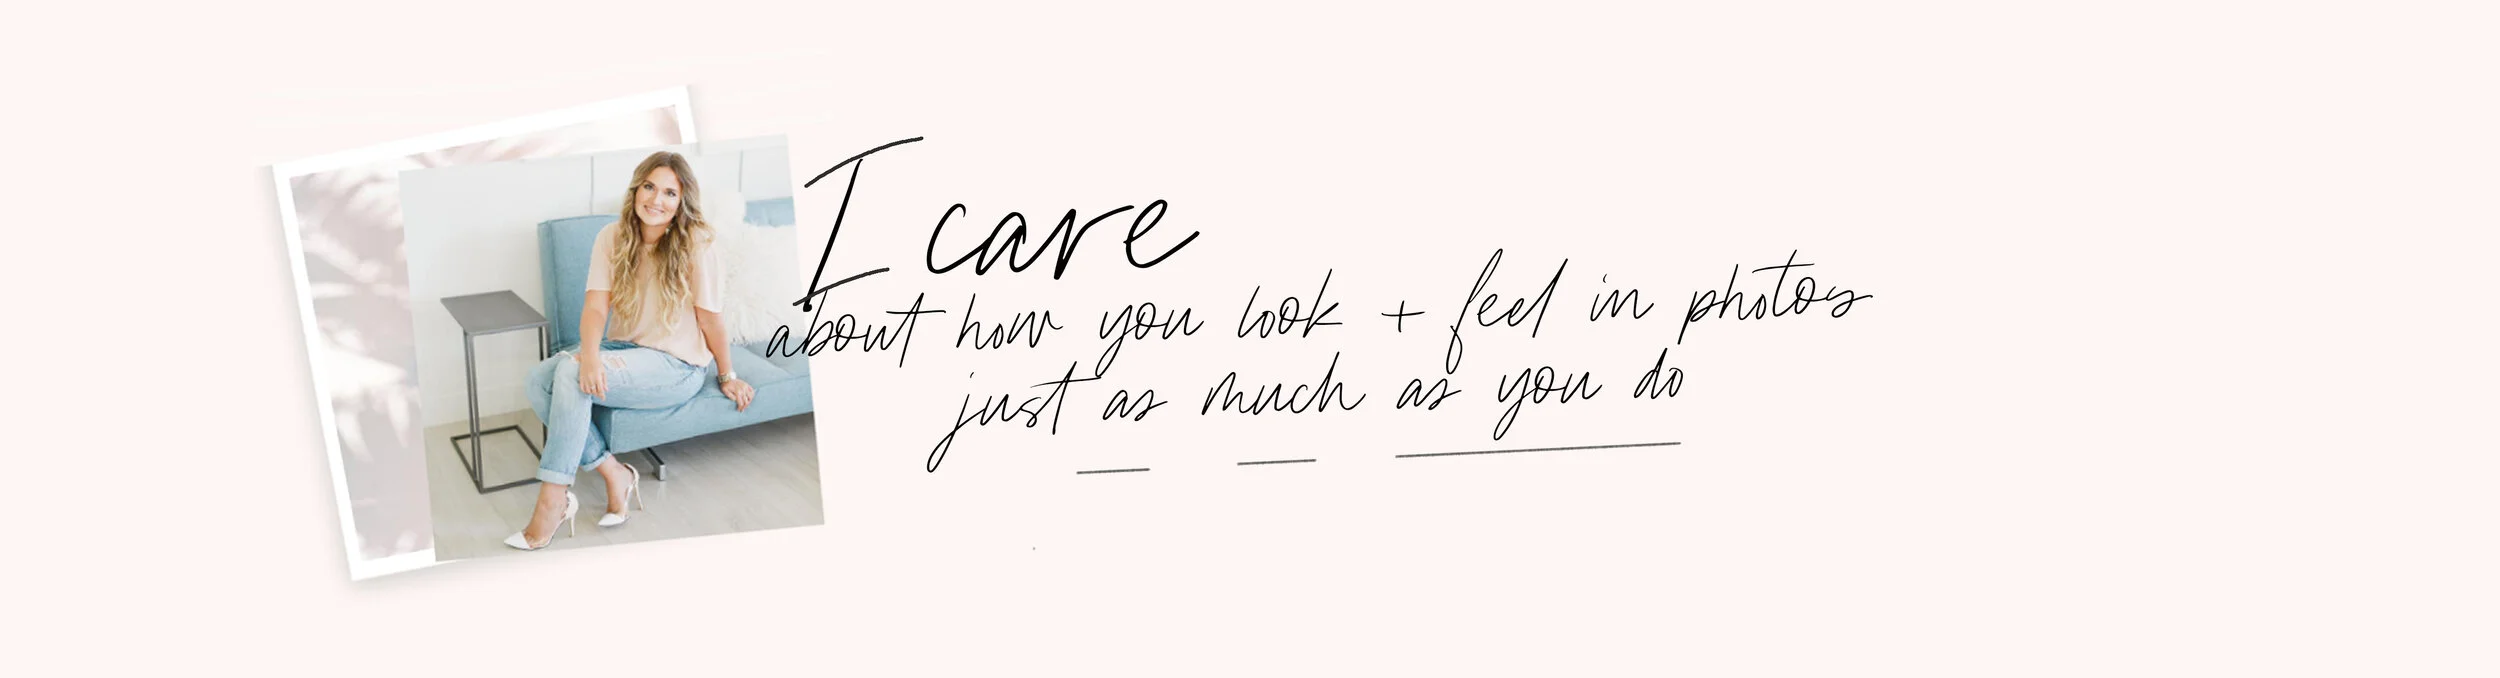 I care
about how you look + feel in photos
just as much as you do